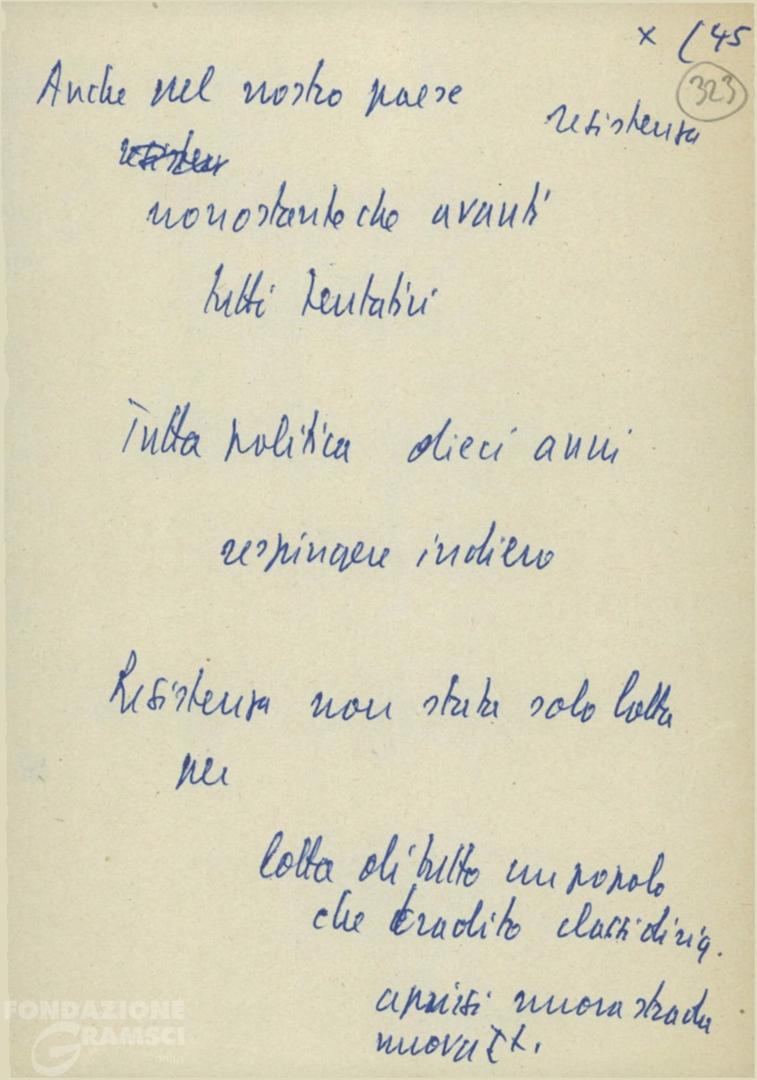 x (45
323
Anche nel nostro paese
resistenza
resisten
nonostante che avanti
tutti tentativi
Tutta politica dieci anni
respingere indiero
Resistenza non stata solo lotta
per
lotta di tutto un popolo
che tradito classi dirig.
aprirsi nuova strada
nuova It.
FONDAZIONE
GRAMSCI